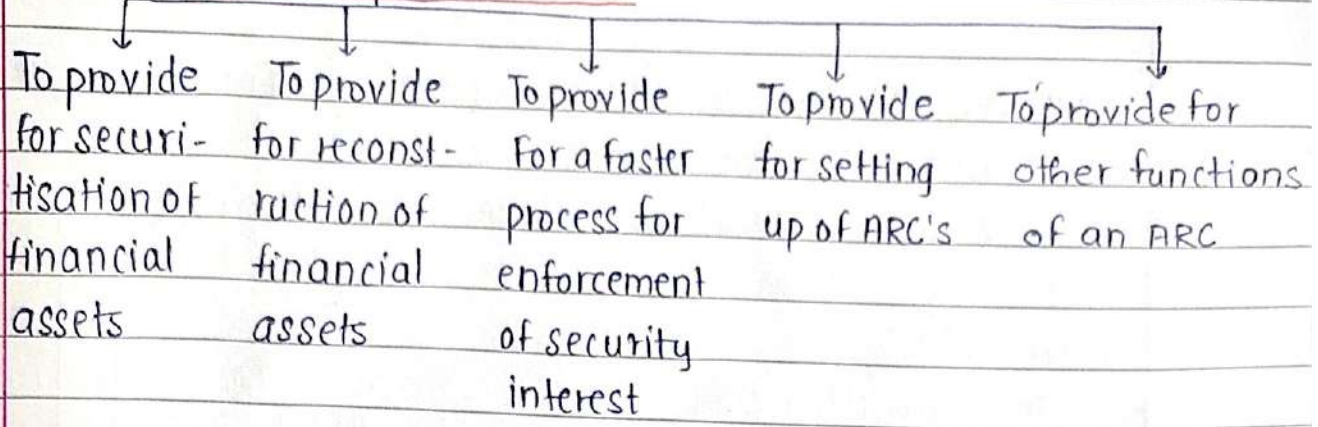 To provide
for securi-
tisation of
financial
assets
To provide
for reconst-
ruction of
financial
assets
To provide
for a faster
process for
enforcement
of security
interest
To provide
for setting
up of ARC's
To provide for
other functions
of an ARC